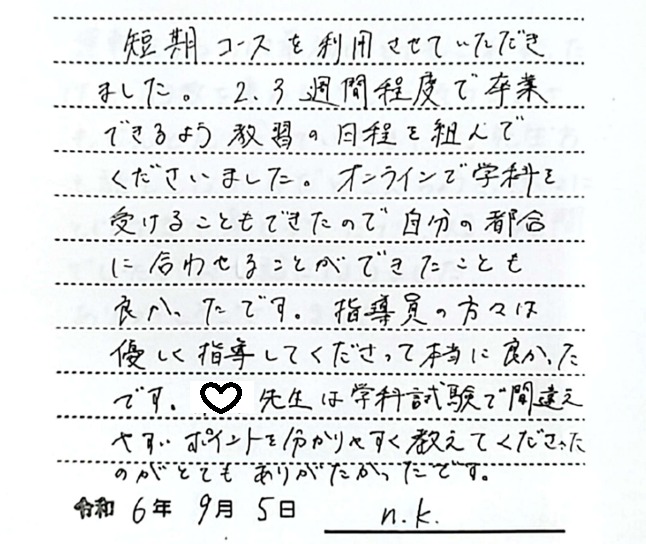 短期コースを利用させていただき
ました。2、3週間程度で卒業
できるよう教習の日程を組んで
くださいました。オンラインで学科を
受けることもできたので自分の都合
に合わせることができたことも
良かったです。指導員の方々は
優しく指導してくださって本当に良かった
です。♡先生は学科試験で間違え
やすいポイントを分かりやすく教えてくださった
のがとてもありがたかったです。
令和6年9月5日 n.k.